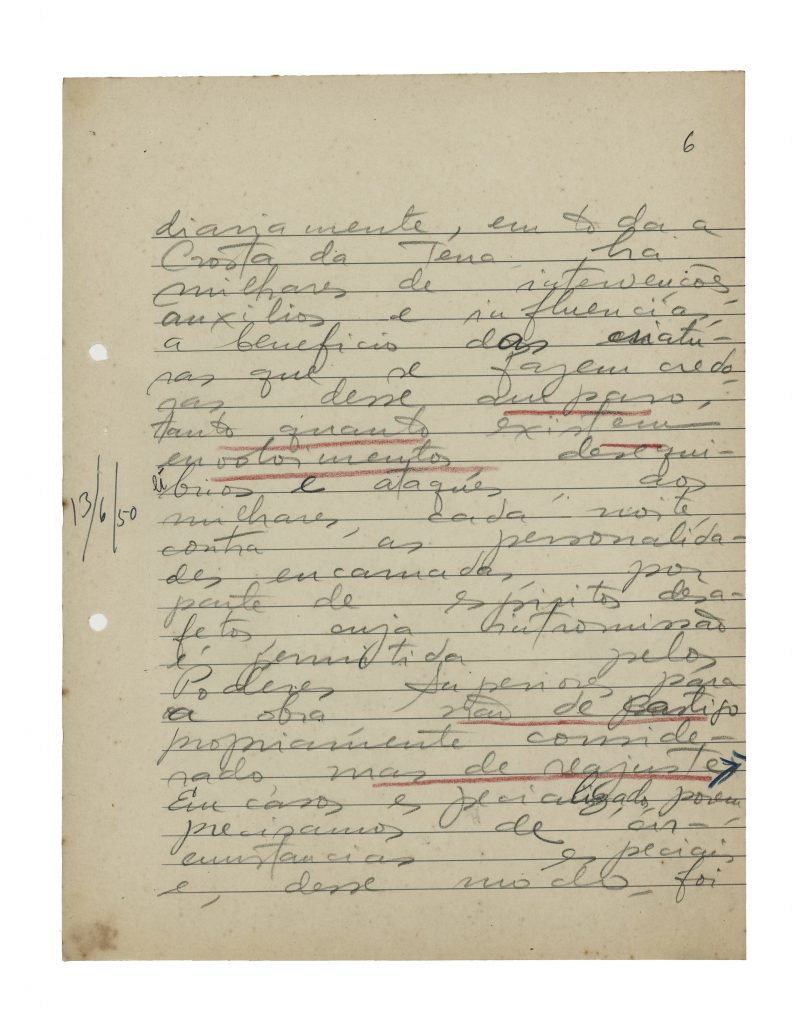 6
diariamente, em toda a
Crosta da Terra há
milhares de intervenções,
auxílios e influências,
a benefício das criatu-
ras que se fazem credo
ras desse amparo,
tanto quanto existem
envolvimentos desequi-
líbrios e ataques, aos
13/6/50
milhares, cada noite,
contra as personalida-
des encarnadas, por
parte de espíritos desa-
fetos, cuja intromissão
é permitida pelos
Poderes Superiores, para
a obra não de castigo
propriamente conside-
rado mas de reajuste
Em casos especializado, porem
precisamos de cir-
cunstancias especiais
e, desse modo, foi